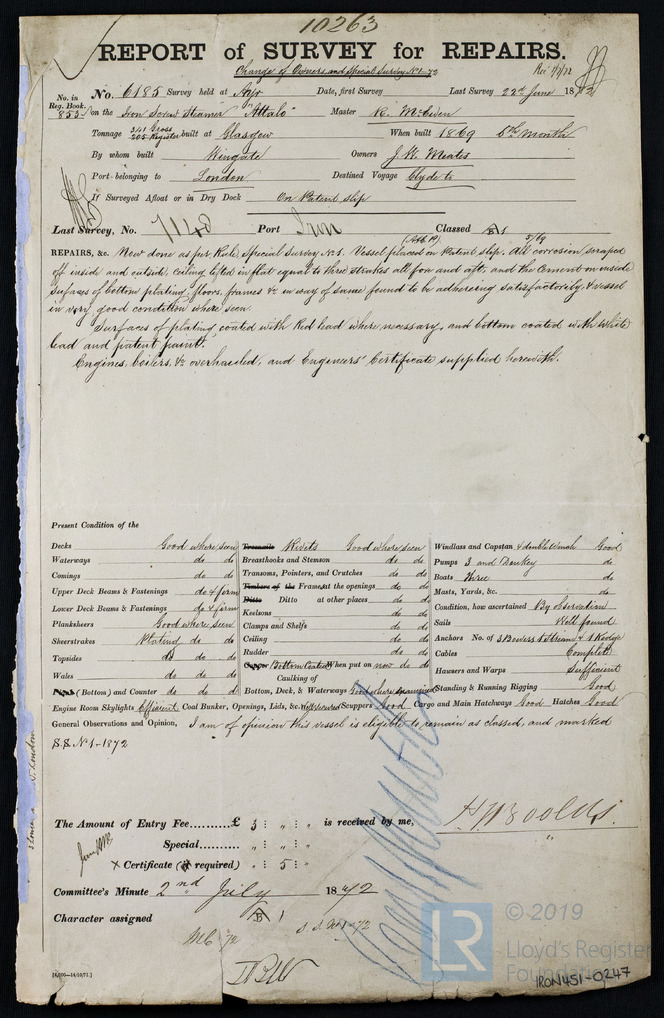 10263
REPORT of SURVEY for REPAIRS.
Change of Owners and Special Survey No 1-72
No. in Reg. Book. No. 6185 Survey held at Ayr Date, first Survey Last Survey, 22nd June 1872
853 on the Iron Screw Steamer "Attalo" Master R. McEwen
Tonnage 341 Gross 205 Register built at Glasgow When built 1869 5th month
By whom built Wingate Owners J. K. Meates
Port belonging to London Destined Voyage Clyde to
If Surveyed Afloat or in Dry Dock On Patent slip
Last Survey, No. 7140 Port Iron Classed A 1
5/69
REPAIRS, &c. Now done as per Rule, Special Survey No 1. Vessel placed on Patent slip. All corrosion scraped
off inside and outside, ceiling lifted in flat equal to three strakes all fore and aft, and the cement on inside
surfaces of bottom plating, floors, frames &c in way of same found to be adhering satisfactorily, & vessel
in very good condition where seen.
Surfaces of plating coated with Red lead where necessary, and bottom coated with white
lead and patent paint.
Engines, boilers, &c overhauled, and Engineers' Certificate supplied herewith.
Present Condition of the
Decks Good where seen Treenails Rivets Good where seen Windlass and Capstan & double Winch Good
Waterways do do Breasthooks and Stemson do do Pumps 3 and Donkey do
Comings do do Transoms, Pointers, and Crutches do do Boats three do
Upper Deck Beams & Fastenings do & firm Timbers of the Frames at the openings do do Masts, Yards, &c. do
Lower Deck Beams & Fastenings do & firm Ditto Ditto at other places do do Condition, how ascertained By observation
Planksheers Good where seen Keelsons do do Sails Well found
Sheerstrakes Plating do do Clamps and Shelfs do do Anchors No. of 3 Bowers 1 Stream & 1 Kedge
Topsides do do do Ceiling do do Cables Complete
Wales do do Rudder do do Hawsers and Warps Sufficient
Plank (Bottom) and Counter do do do Copper Bottom Coated When put on now do do Standing & Running Rigging Good
Caulking of Bottom, Deck, & Waterways Good where
Engine Room Skylights Efficient Coal Bunker, Openings, Lids, &c. well secured Scuppers Good Cargo and Main Hatchways Good Hatches Good
General Observations and Opinion, I am of opinion this vessel is eligible to remain as classed, and marked
S.S. No 1-1872
The Amount of Entry Fee.......... £ 3 : " : " is received by me,
Special.......... " : " : "
Certificate (if required) " : 5 : "
Committee's Minute 2nd July 1872
Character assigned A 1
MC 72 S.S. No 1-72
© 2019
LR Lloyd's Register
Foundation
IRON451-0247